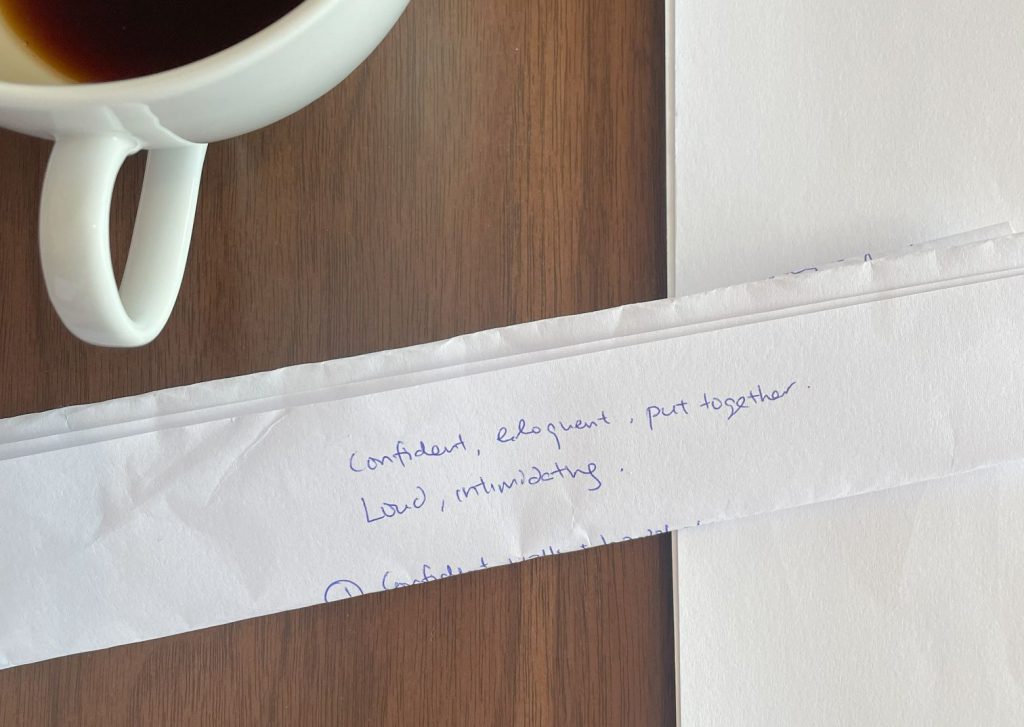 Confident, eloquent, put together.
Loud, intimidating.
① Confident